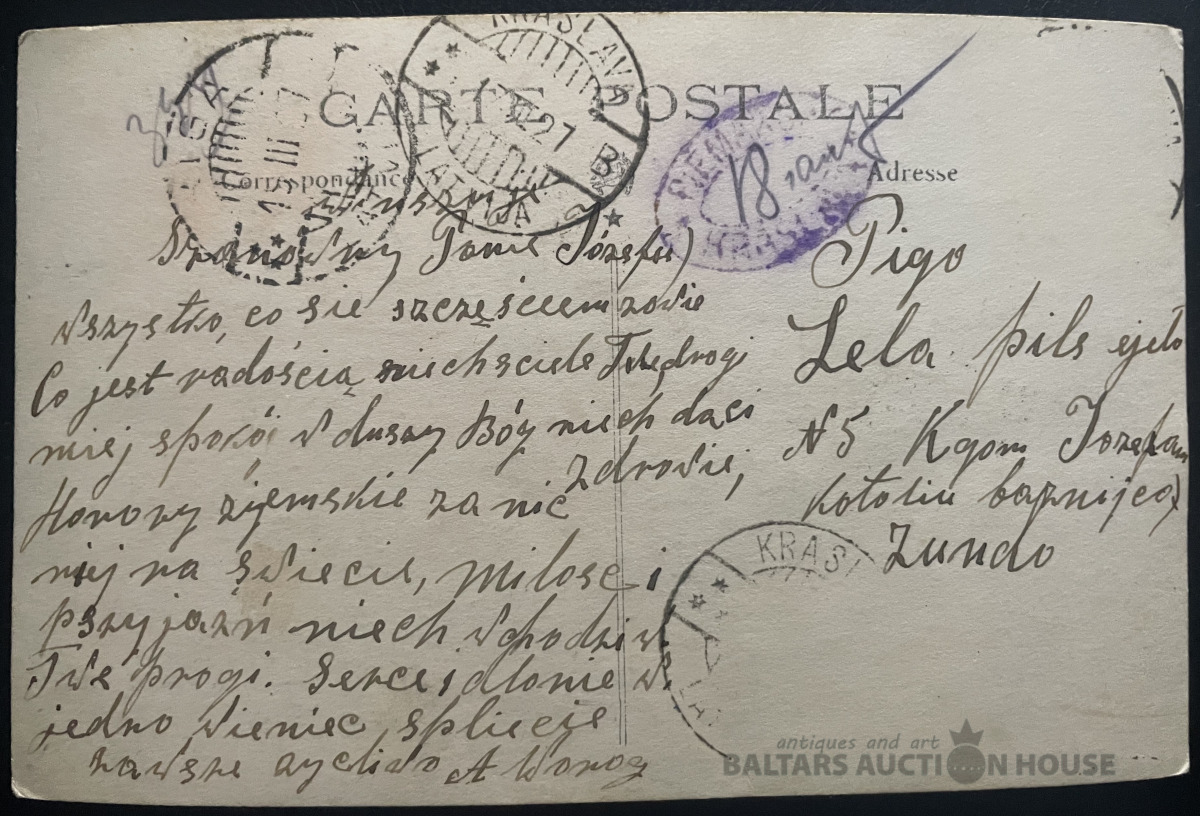 CARTE POSTALE
Correspondance
Adresse
KRASLAVA
27
B
LATVIJA
18
Winszuję
Szanowny Panie Józefie)
Wszystko, co sie szczęściem zowie
Co jest radością niech sciele Twe drogi
miej spokój w duszy Bóg niech da ci
zdrowie,
Honory ziemskie za nic
miej na świecie, miłosc i
pszyjaźń niech wchodzi w
Twe progi. Serce i dlonie w
jedno wieniec splecie
zawsze
A
Pigo
Lela pils
N 5 Kgom Jozefam
kotoliu baznijco)
Zundo
KRASL
antiques and art
BALTARS AUCTION HOUSE